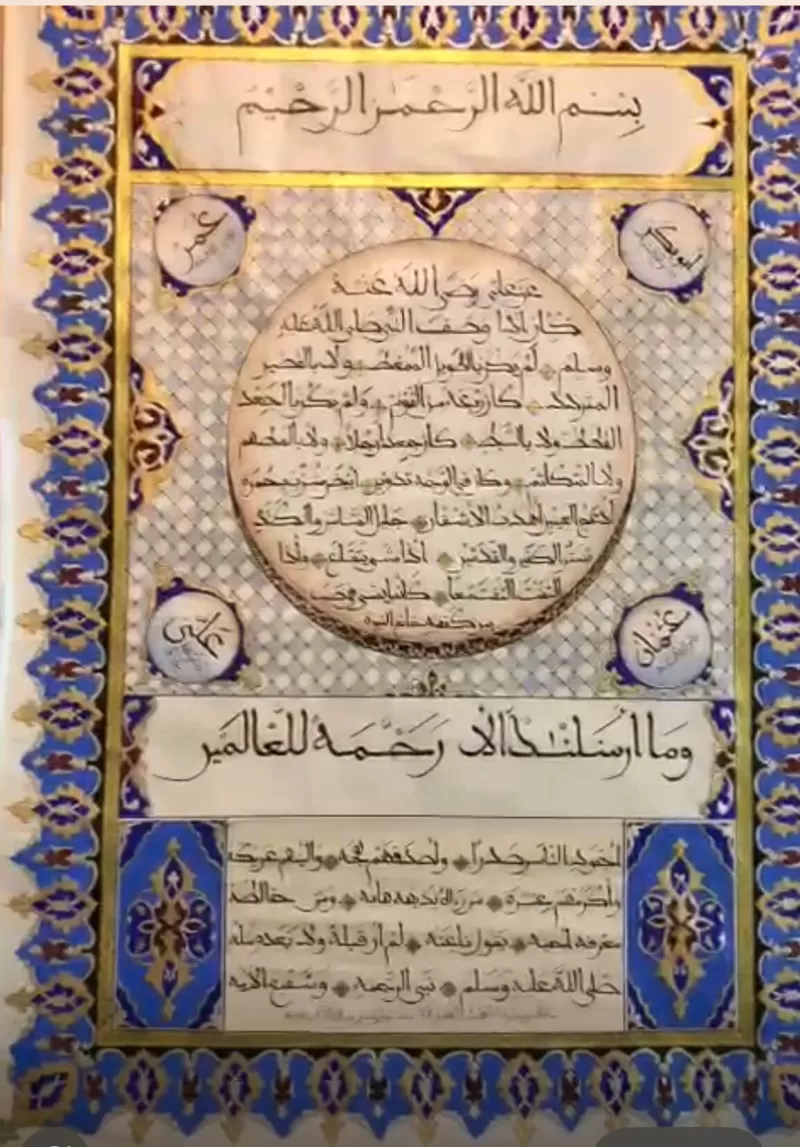 بِسْمِ اللَّهِ الرَّحْمَٰنِ الرَّحِيْمِ
ابو بكر
عُمَر
عن علي رضي الله عنه
كان إذا وصف النبي صلى الله عليه
وسلم لم يكن بالطويل الممغط ولا بالقصير
المتردد كان ربعة من القوم ولم يكن بالجعد
القطط ولا بالسبط كان جعدا رجلا ولا بالمطهم
ولا المكلثم وكان في الوجه تدوير ابيض مشرب بحمرة
أدعج العينين أهدب الأشفار جليل المشاش والكتد
شثن الكفين والقدمين إذا مشى يتقلع وإذا
التفت التفت معا
بين كتفيه خاتم النبوة
عثمان
علي
وَمَا أَرْسَلْنَٰكَ إِلَّا رَحْمَةً لِلْعَالَمِيْن
أجود الناس صدرا وأصدقهم لهجة وألينهم عريكة
وأكرمهم عشرة من رآه بديهة هابه ومن خالطه
معرفة أحبه يقول ناعته لم أر قبله ولا بعده مثله
صلى الله عليه وسلم نبي الرحمة وشفيع الأمة